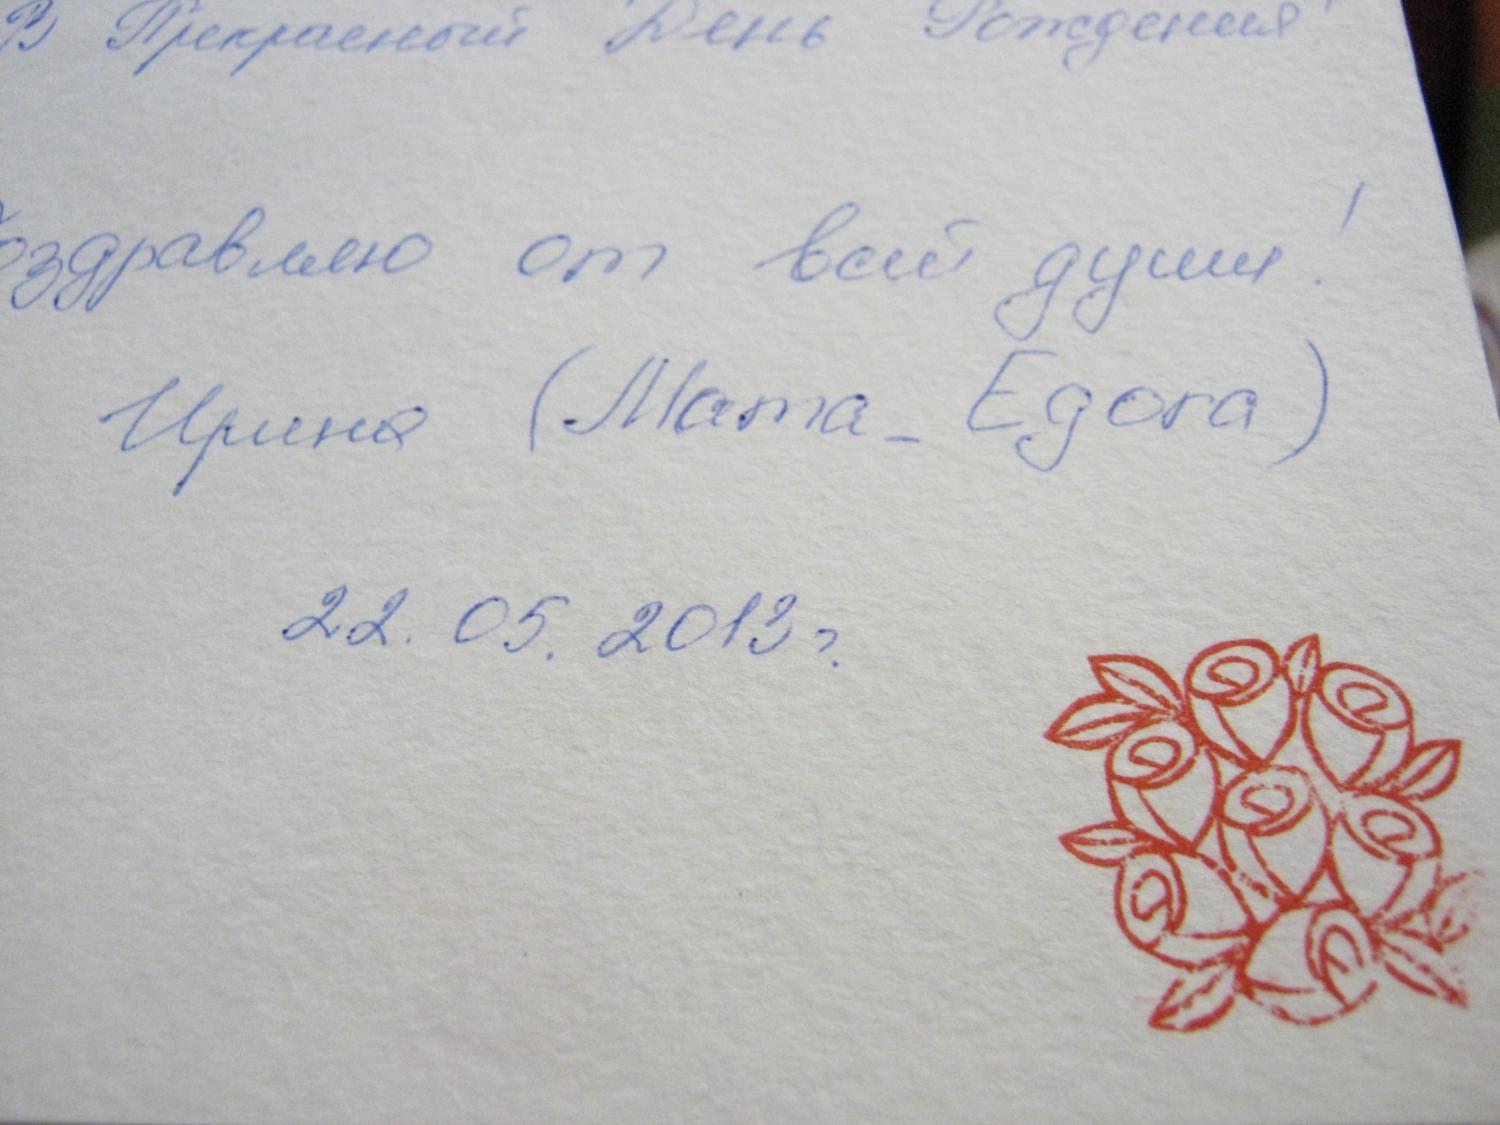 В Прекрасный День Рождения!
Поздравляю от всей души!
Ирина (Mama_Egora)
22.05.2013г.